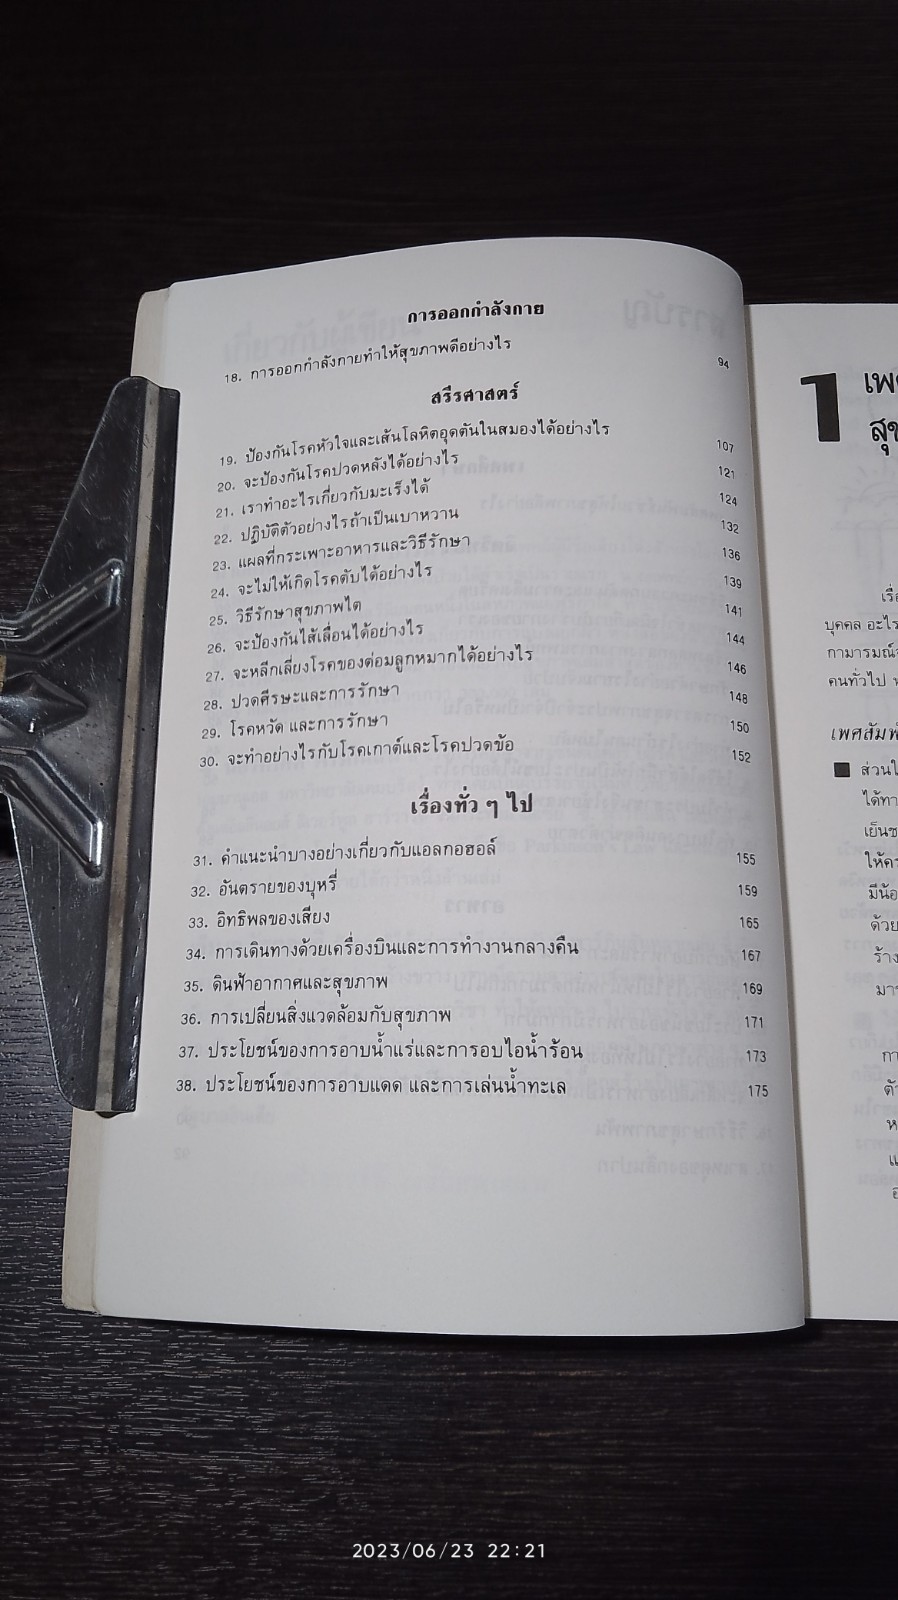 การออกกำลังกาย
18. การออกกำลังกายทำให้สุขภาพดีอย่างไร 94
สรีรศาสตร์
19. ป้องกันโรคหัวใจและเส้นโลหิตอุดตันในสมองได้อย่างไร 107
20. จะป้องกันโรคปวดหลังได้อย่างไร 121
21. เราทำอะไรเกี่ยวกับมะเร็งได้ 124
22. ปฏิบัติตัวอย่างไรถ้าเป็นเบาหวาน 132
23. แผลที่กระเพาะอาหารและวิธีรักษา 136
24. จะไม่ให้เกิดโรคตับได้อย่างไร 139
25. วิธีรักษาสุขภาพไต 141
26. จะป้องกันไส้เลื่อนได้อย่างไร 144
27. จะหลีกเลี่ยงโรคของต่อมลูกหมากได้อย่างไร 146
28. ปวดศีรษะและการรักษา 148
29. โรคหวัด และการรักษา 150
30. จะทำอย่างไรกับโรคเกาต์และโรคปวดข้อ 152
เรื่องทั่ว ๆ ไป
31. คำแนะนำบางอย่างเกี่ยวกับแอลกอฮอล์ 155
32. อันตรายของบุหรี่ 159
33. อิทธิพลของเสียง 165
34. การเดินทางด้วยเครื่องบินและการทำงานกลางคืน 167
35. ดินฟ้าอากาศและสุขภาพ 169
36. การเปลี่ยนสิ่งแวดล้อมกับสุขภาพ 171
37. ประโยชน์ของการอาบน้ำแร่และการอบไอน้ำร้อน 173
38. ประโยชน์ของการอาบแดด และการเล่นน้ำทะเล 175
1
บุคคล อะไร
กามารมณ์
คนทั่วไป
■ ส่วนใ
ได้ทา
เย็นช
ให้คร
มีน้อ
ด้วย
ร้าง
มาร
2023/06/23 22:21